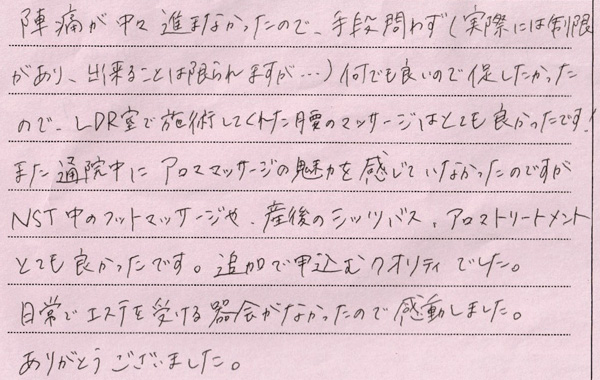 陣痛が中々進まなかったので、手段問わず(実際には制限
があり、出来ることは限られますが…)何でも良いので促したかった
ので、LDR室で施術してくれた腰のマッサージはとても良かったです!
また通院中にアロママッサージの魅力を感じていなかったのですが
NST中のフットマッサージや、産後のシッツバス、アロマトリートメント
とても良かったです。追加で申込むクオリティでした。
日常でエステを受ける器会がなかったので感動しました。
ありがとうございました。